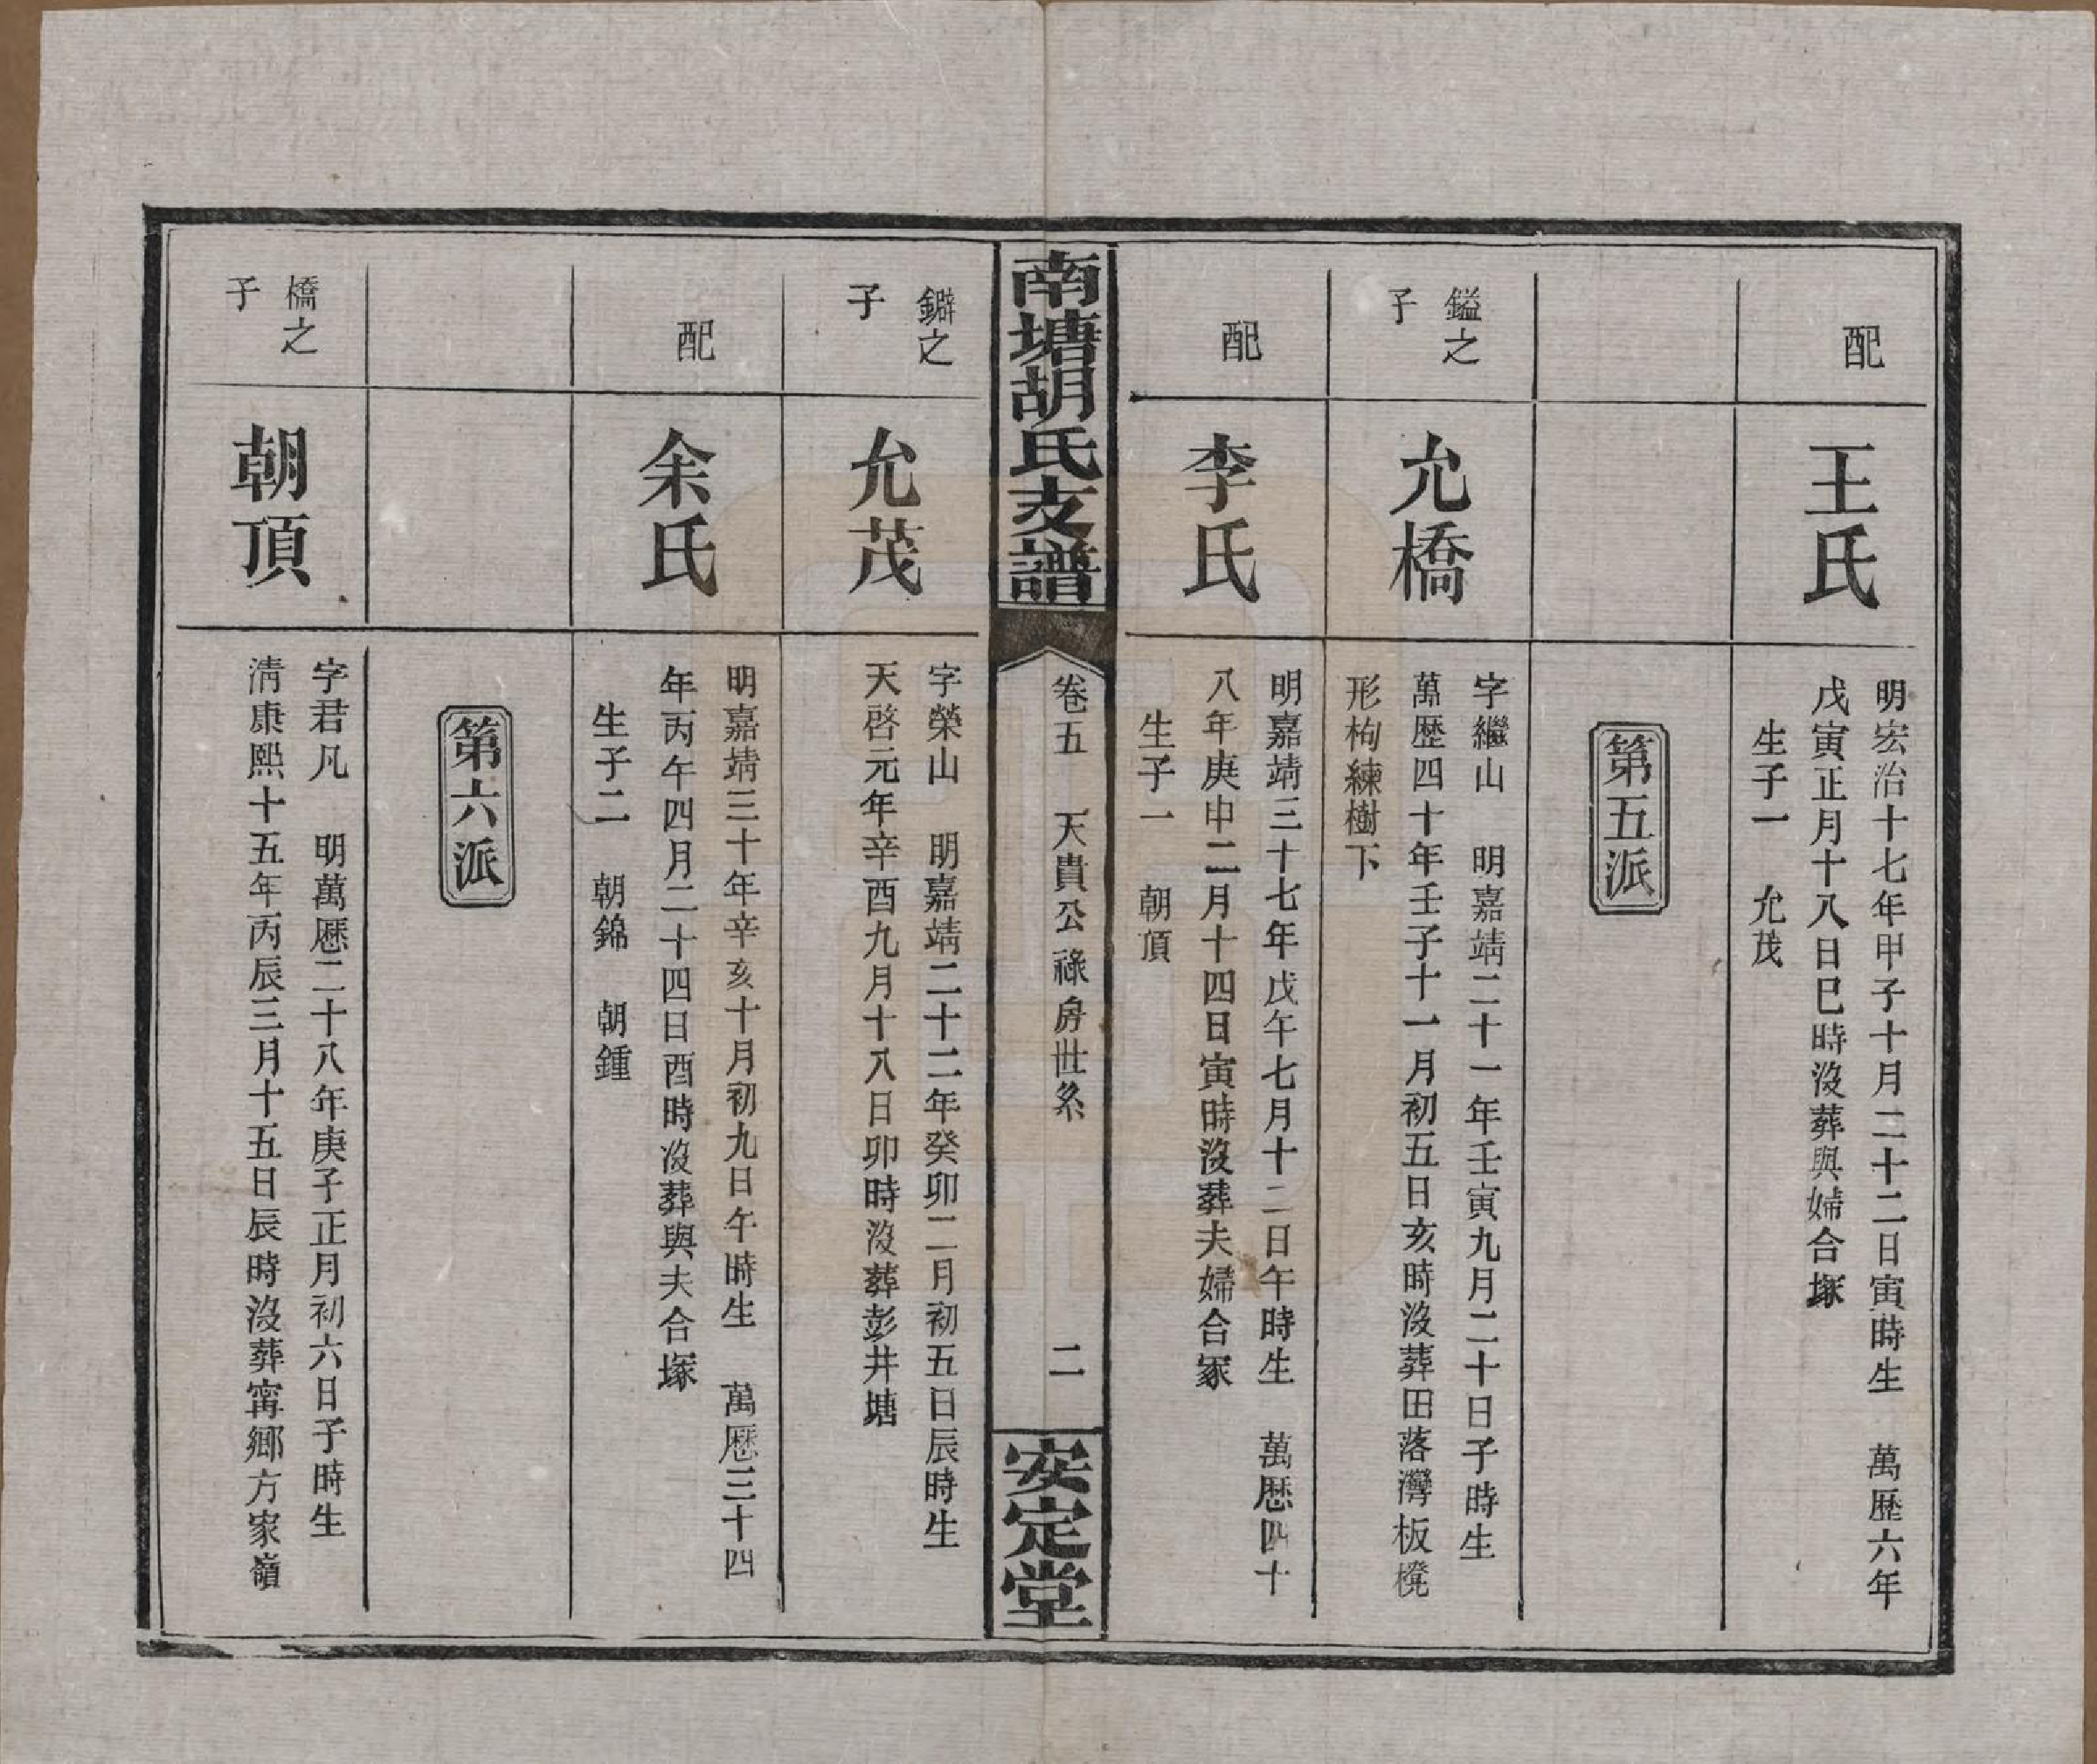 配
王氏
明宏治十七年甲子十月二十二日寅時生　萬歷六年
戊寅正月十八日巳時沒葬與婦合塚
生子一　允茂
第五派
鎰之
子
允橋
字繼山　明嘉靖二十一年壬寅九月二十日子時生
萬歷四十年壬子十一月初五日亥時沒葬田落灣板櫈
形枸練樹下
配
李氏
明嘉靖三十七年戊午七月十二日午時生　萬歷四十
八年庚申二月十四日寅時沒葬夫婦合冢
生子一　朝頂
南塘胡氏支譜
卷五　天貴公祿房世系
二
安定堂
鐴之
子
允茂
字榮山　明嘉靖二十二年癸卯二月初五日辰時生
天啓元年辛酉九月十八日卯時沒葬彭井塘
配
余氏
明嘉靖三十年辛亥十月初九日午時生　萬歷三十四
年丙午四月二十四日酉時沒葬與夫合塚
生子二　朝錦　朝鍾
第六派
橋之
子
朝頂
字君凡　明萬歷二十八年庚子正月初六日子時生
淸康熙十五年丙辰三月十五日辰時沒葬甯鄉方家嶺